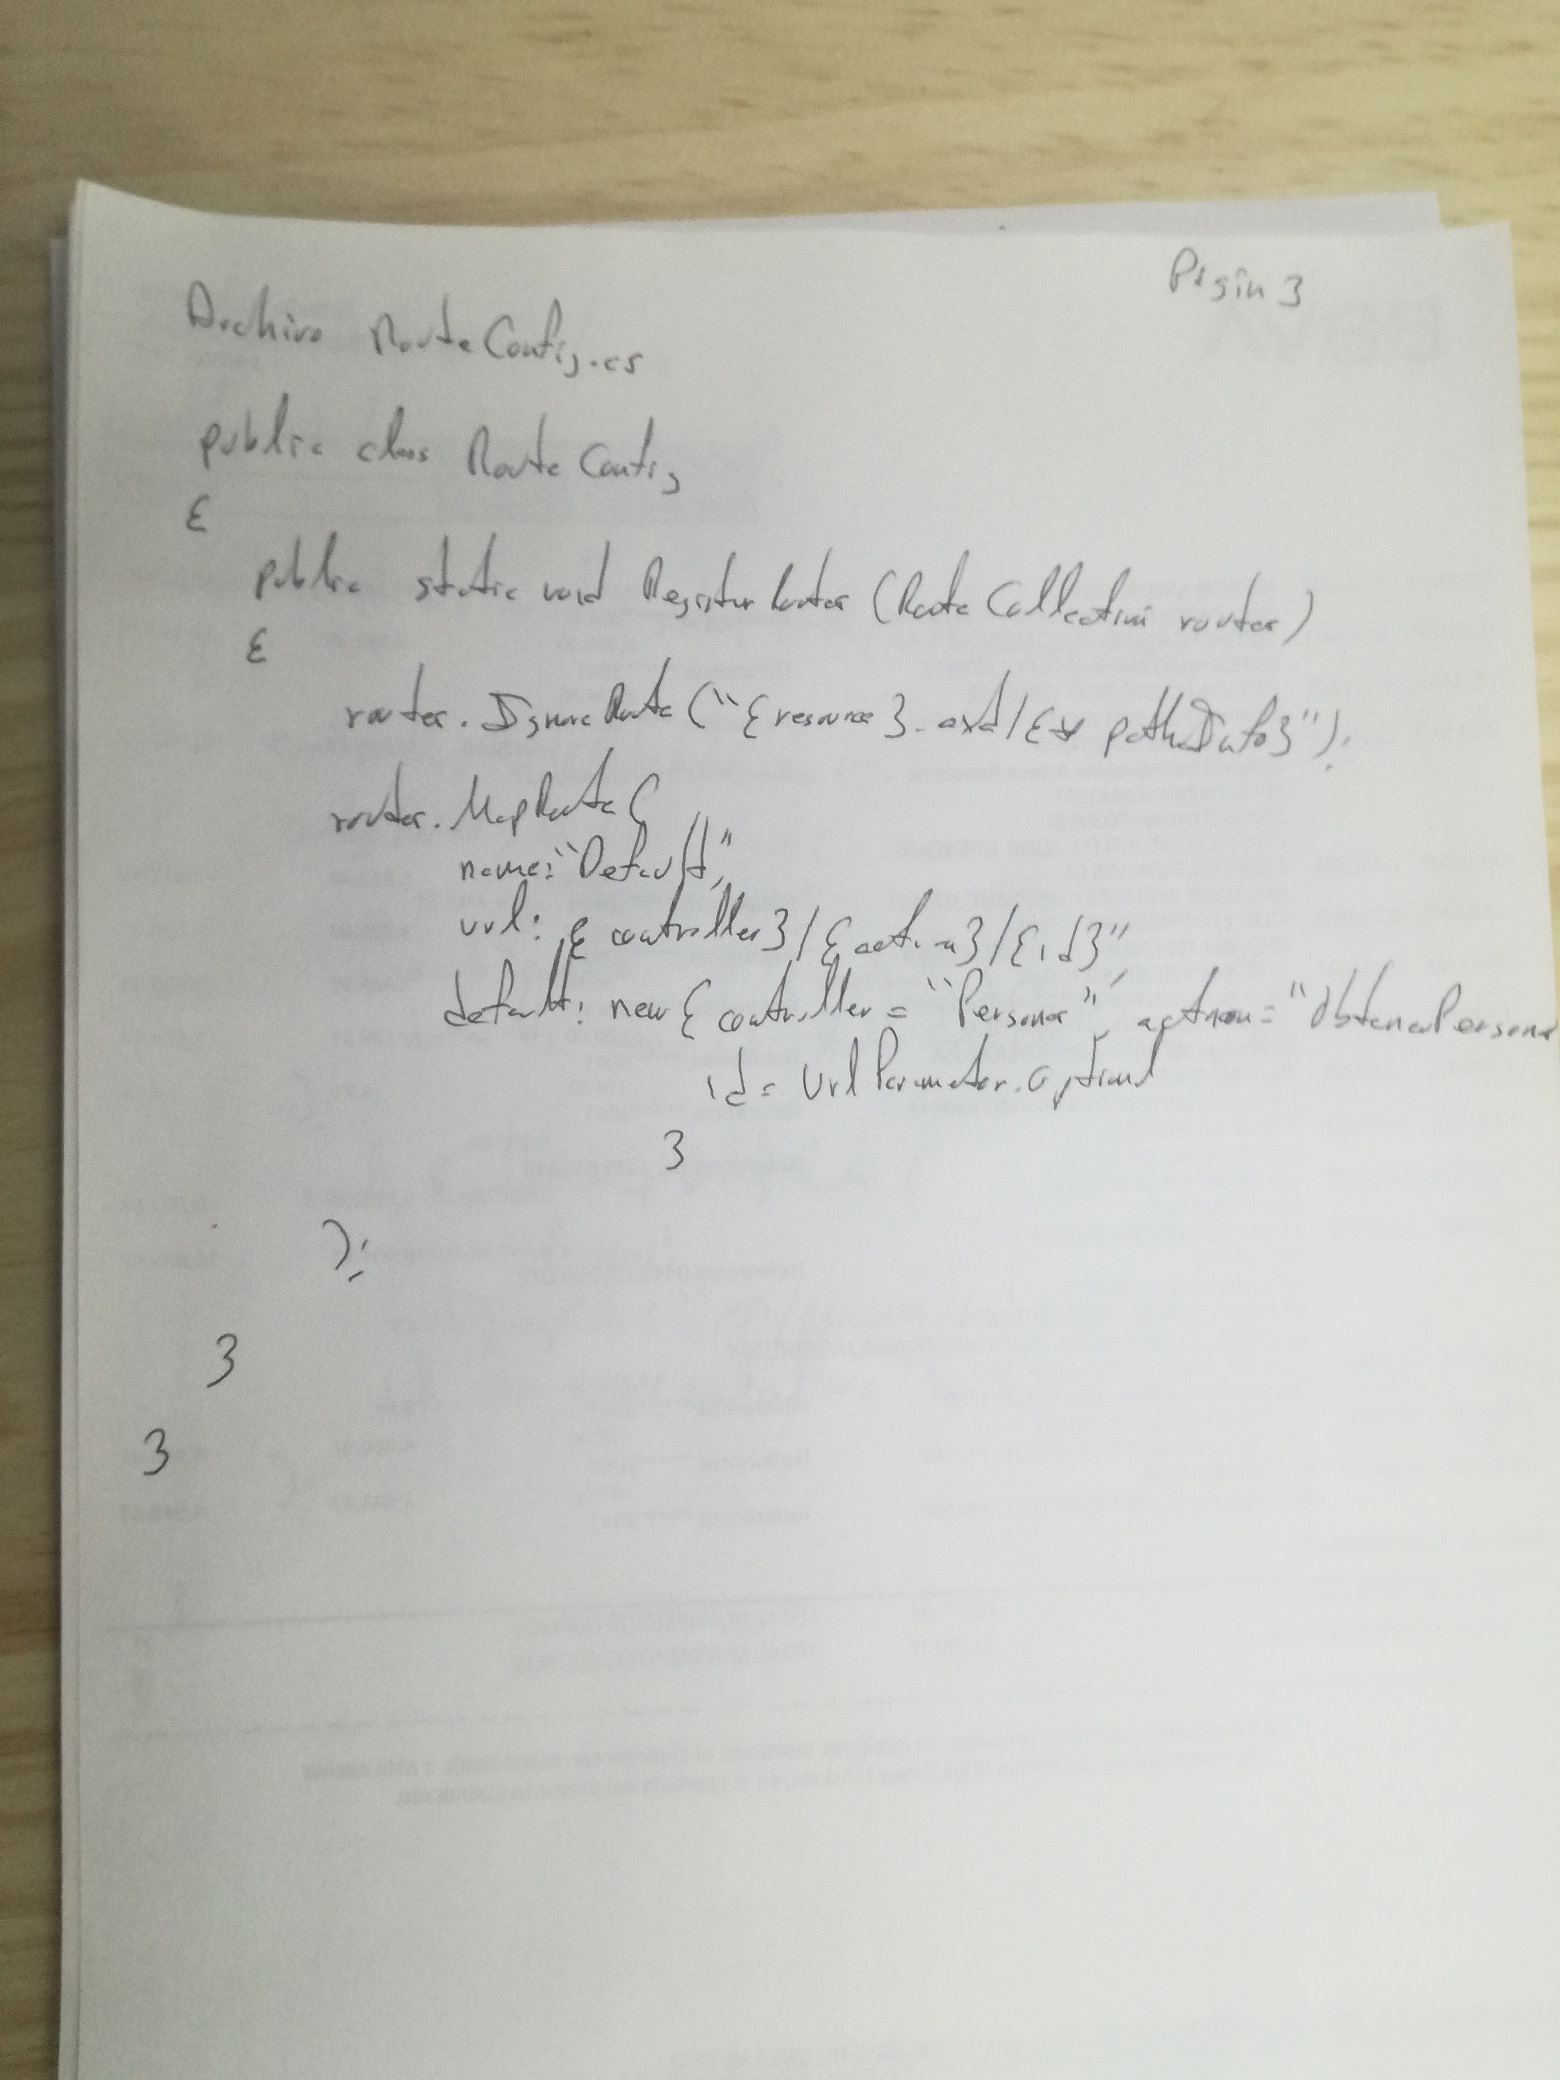 Pagin 3
Archivo RouteConfig.cs
public class RouteConfig
{
public static void RegisterRoutes (RouteCollection routes)
{
routes.IgnoreRoute ("{resource}.axd/{* pathInfo}");
routes.MapRoute (
name: "Default",
url: {controller}/{action}/{id}",
default: new { controller = "Persona", action = "ObtenerPersona
id = UrlParameter.Optional
}
);
}
}